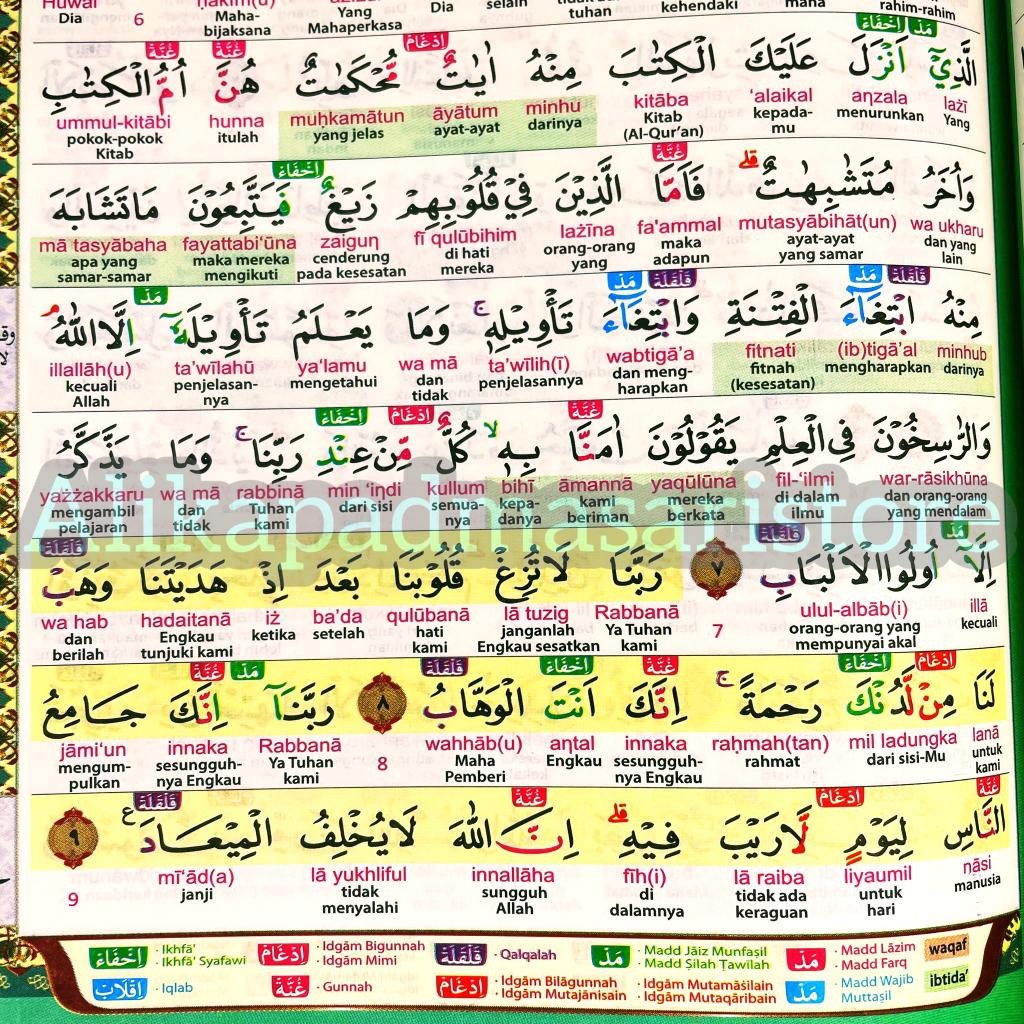 Huwal ḥakīm(u) azīzu selain tuhan kehendaki maha rahim-rahim
Dia 6 Maha-bijaksana Yang Mahaperkasa Dia
مَدّ اِخْفَاءْ اِدْغَامْ غُنَّةْ غُنَّةْ
الَّذِيْٓ اَنْزَلَ عَلَيْكَ الْكِتٰبَ مِنْهُ اٰيٰتٌ مُّحْكَمٰتٌ هُنَّ اُمُّ الْكِتٰبِ
lażī anzala ‘alaikal kitāba minhu āyātum muḥkamātun hunna ummul-kitābi
Yang menurunkan kepada-mu Kitab (Al-Qur’an) darinya ayat-ayat yang jelas itulah pokok-pokok Kitab
غُنَّةْ اِخْفَاءْ
وَاُخَرُ مُتَشٰبِهٰتٌ ۗ فَاَمَّا الَّذِيْنَ فِيْ قُلُوْبِهِمْ زَيْغٌ فَيَتَّبِعُوْنَ مَا تَشَابَهَ
wa ukharu mutasyābihāt(un) fa'ammal lażīna fī qulūbihim zaigun fayattabi‘ūna mā tasyābaha
dan yang lain ayat-ayat yang samar maka adapun orang-orang yang di hati mereka cenderung pada kesesatan maka mereka mengikuti apa yang samar-samar
قَلْقَلَةْ مَدّ قَلْقَلَةْ مَدّ مَدّ
مِنْهُ ابْتِغَاۤءَ الْفِتْنَةِ وَابْتِغَاۤءَ تَأْوِيْلِهٖ ۚ وَمَا يَعْلَمُ تَأْوِيْلَهٗٓ اِلَّا اللّٰهُ ۘ
minhub (ib)tigā’al fitnati wabtigā’a ta’wīlih(ī) wa mā ya‘lamu ta’wīlahū illallāh(u)
darinya mengharapkan fitnah (kesesatan) dan meng-harapkan penjelasannya dan tidak mengetahui penjelasan-nya kecuali Allah
غُنَّةْ اِدْغَامْ اِخْفَاءْ
وَالرّٰسِخُوْنَ فِى الْعِلْمِ يَقُوْلُوْنَ اٰمَنَّا بِهٖ ۙ كُلٌّ مِّنْ عِنْدِ رَبِّنَا ۚ وَمَا يَذَّكَّرُ
war-rāsikhūna fil-‘ilmi yaqūlūna āmannā bihī kullum min ‘indi rabbinā wa mā yażżakkaru
dan orang-orang yang mendalam di dalam ilmu mereka berkata kami beriman kepa-danya semua-nya dari sisi Tuhan kami dan tidak mengambil pelajaran
Alikapadmasaristore
مَدّ قَلْقَلَةْ قَلْقَلَةْ
اِلَّآ اُولُوا الْاَلْبَابِ ٧ رَبَّنَا لَا تُزِغْ قُلُوْبَنَا بَعْدَ اِذْ هَدَيْتَنَا وَهَبْ
illā ulul-albāb(i) 7 Rabbanā lā tuzig qulūbanā ba‘da iż hadaitanā wa hab
kecuali orang-orang yang mempunyai akal Ya Tuhan kami janganlah Engkau sesatkan hati kami setelah ketika Engkau tunjuki kami dan berilah
اِدْغَامْ اِخْفَاءْ غُنَّةْ اِخْفَاءْ قَلْقَلَةْ مَدّ غُنَّةْ
لَنَا مِنْ لَّدُنْكَ رَحْمَةً ۚ اِنَّكَ اَنْتَ الْوَهَّابُ ٨ رَبَّنَآ اِنَّكَ جَامِعُ
lanā mil ladungka raḥmah(tan) innaka antal wahhāb(u) 8 Rabbanā innaka jāmi‘un
untuk kami dari sisi-Mu rahmat sesungguh-nya Engkau Engkau Maha Pemberi Ya Tuhan kami sesungguh-nya Engkau mengum-pulkan
غُنَّةْ اِدْغَامْ غُنَّةْ قَلْقَلَةْ
النَّاسِ لِيَوْمٍ لَّا رَيْبَ فِيْهِ ۗ اِنَّ اللّٰهَ لَا يُخْلِفُ الْمِيْعَادَ ࣖ ٩
nāsi liyaumil lā raiba fīh(i) innallāha lā yukhliful mī‘ād(a) 9
manusia untuk hari tidak ada keraguan di dalamnya sungguh Allah tidak menyalahi janji
اِخْفَاءْ · Ikhfā’ · Ikhfā’ Syafawi اِدْغَامْ · Idgām Bigunnah · Idgām Mimi قَلْقَلَةْ · Qalqalah مَدّ · Madd Jāiz Munfaṣil · Madd Ṣilah Ṭawilah مَدّ · Madd Lāzim · Madd Farq waqaf
اِقْلَابْ · Iqlab غُنَّةْ · Gunnah اِدْغَامْ · Idgām Bilāgunnah · Idgām Mutajānisain · Idgām Mutamāṡilain · Idgām Mutaqāribain مَدّ · Madd Wajib Muttaṣil ibtida’